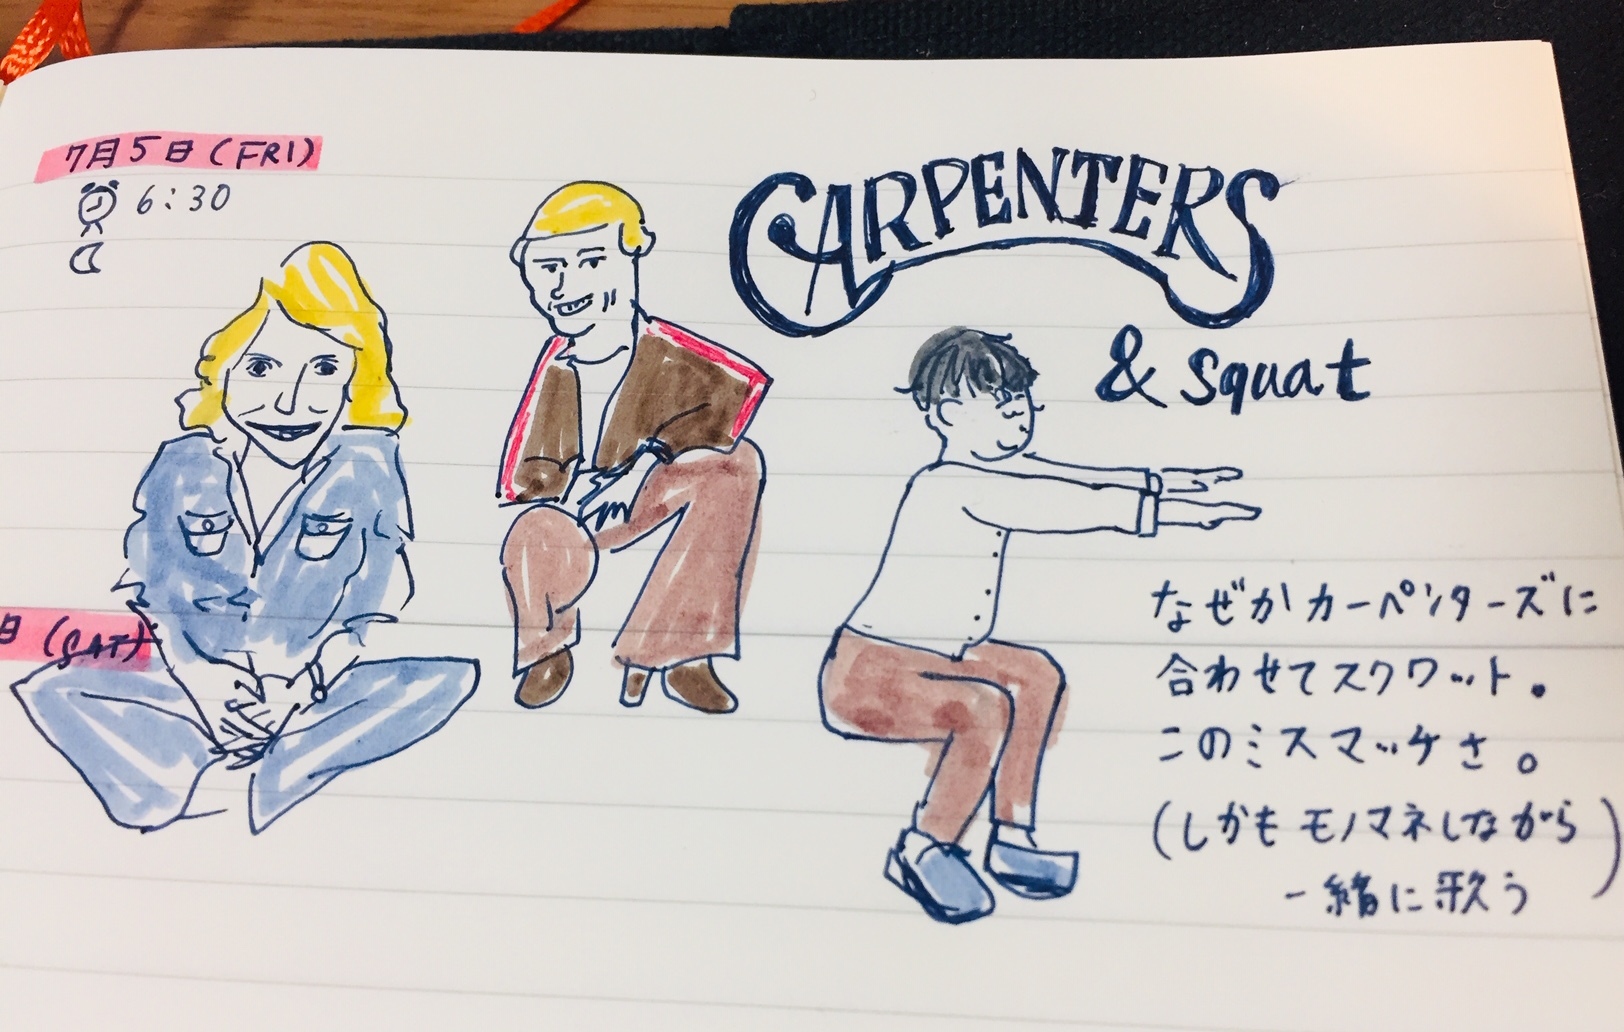 7月5日(FRI)
6:30
CARPENTERS
& squat
日(SAT)
なぜかカーペンターズに
合わせてスクワット。
このミスマッチさ。
(しかもモノマネしながら
一緒に歌う)